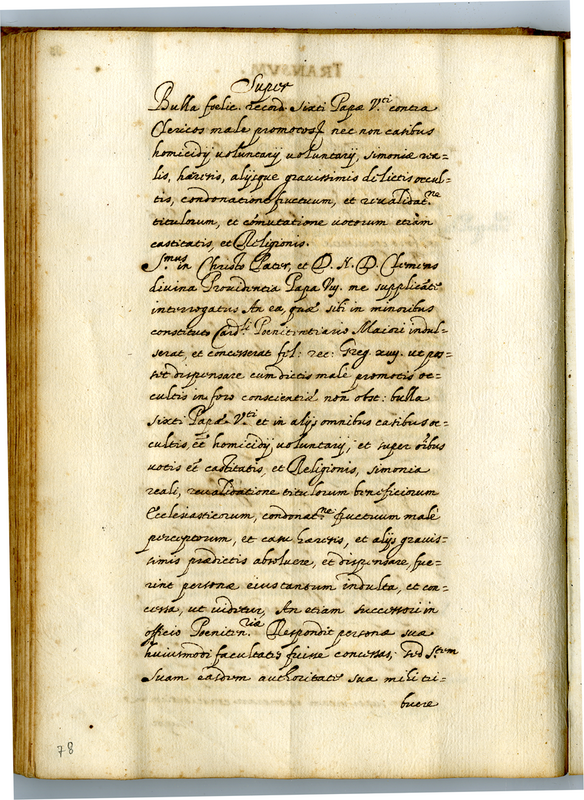 Super
Bulla foelic. record. Sixti Papæ V.ti contra
Clericos male promotos, nec non casibus
homicidij voluntarij voluntarij, simoniæ rea=
lis, hæresis, alijsque gravissimis delictis occul=
tis, condonatione fructuum, et revalidat.ne
titulorum, et cõmutatione votorum etiam
castitatis, et Religionis.
S.mus in Christo Pater, et D. N. D. Clemens
divina Providentia Papa Viij. me supplicãte
interrogatus An ea, quæ sibi in minoribus
constituto Card.li Poenitentiario Maiori indul=
serat, et concesserat fel: rec: Greg. xiij. ut pos=
set dispensare cum dictis male promotis oc=
cultis in foro conscientiæ non obst: bulla
Sixti Papæ V.ti et in alijs omnibus casibus oc=
cultis, ẽt homicidij voluntarij, et super oĩbus
votis ẽt castitatis, et Religionis, simonia
reali, revalidatione titulorum beneficiorum
Ecclesiasticorum, condonat.ne fructuum male
perceptorum, et casu hæresis, et alijs gravis=
simis prædictis absolvere, et dispensare, fue=
rint personæ eius tantum indulta, et con=
cessa, ut videtur, An etiam successori in
officio Poeniten.riæ Respondit personæ suæ
huiusmodi facultates fuisse concessas, sed S.tem
Suam easdem authoritate sua mihi tri=
buere
78